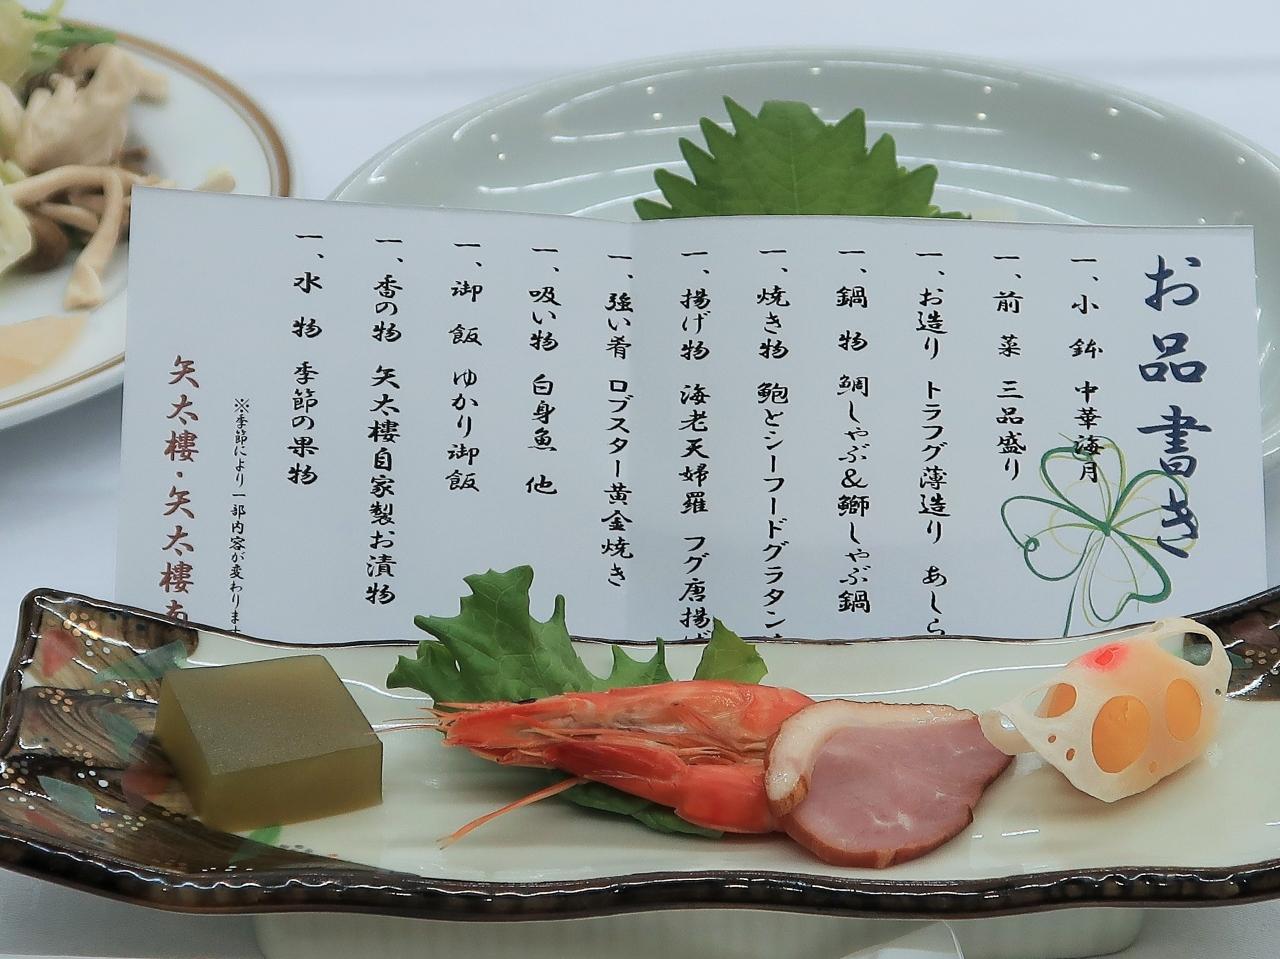 お品書き
一、小鉢 中華海月
一、前菜 三品盛り
一、お造り トラフグ薄造り あしら
一、鍋物 鯛しゃぶ&鰤しゃぶ鍋
一、焼き物 鮑とシーフードグラタン
一、揚げ物 海老天婦羅 フグ唐揚げ
一、強い肴 ロブスター黄金焼き
一、吸い物 白身魚 他
一、御飯 ゆかり御飯
一、香の物 矢太樓自家製お漬物
一、水物 季節の果物
※季節により一部内容が変わりま
矢太樓・矢太樓